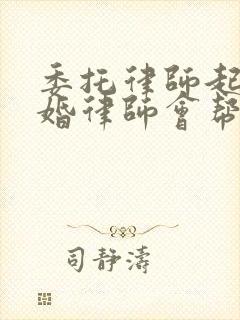 委托律師起
婚律師會幫
司靜濤